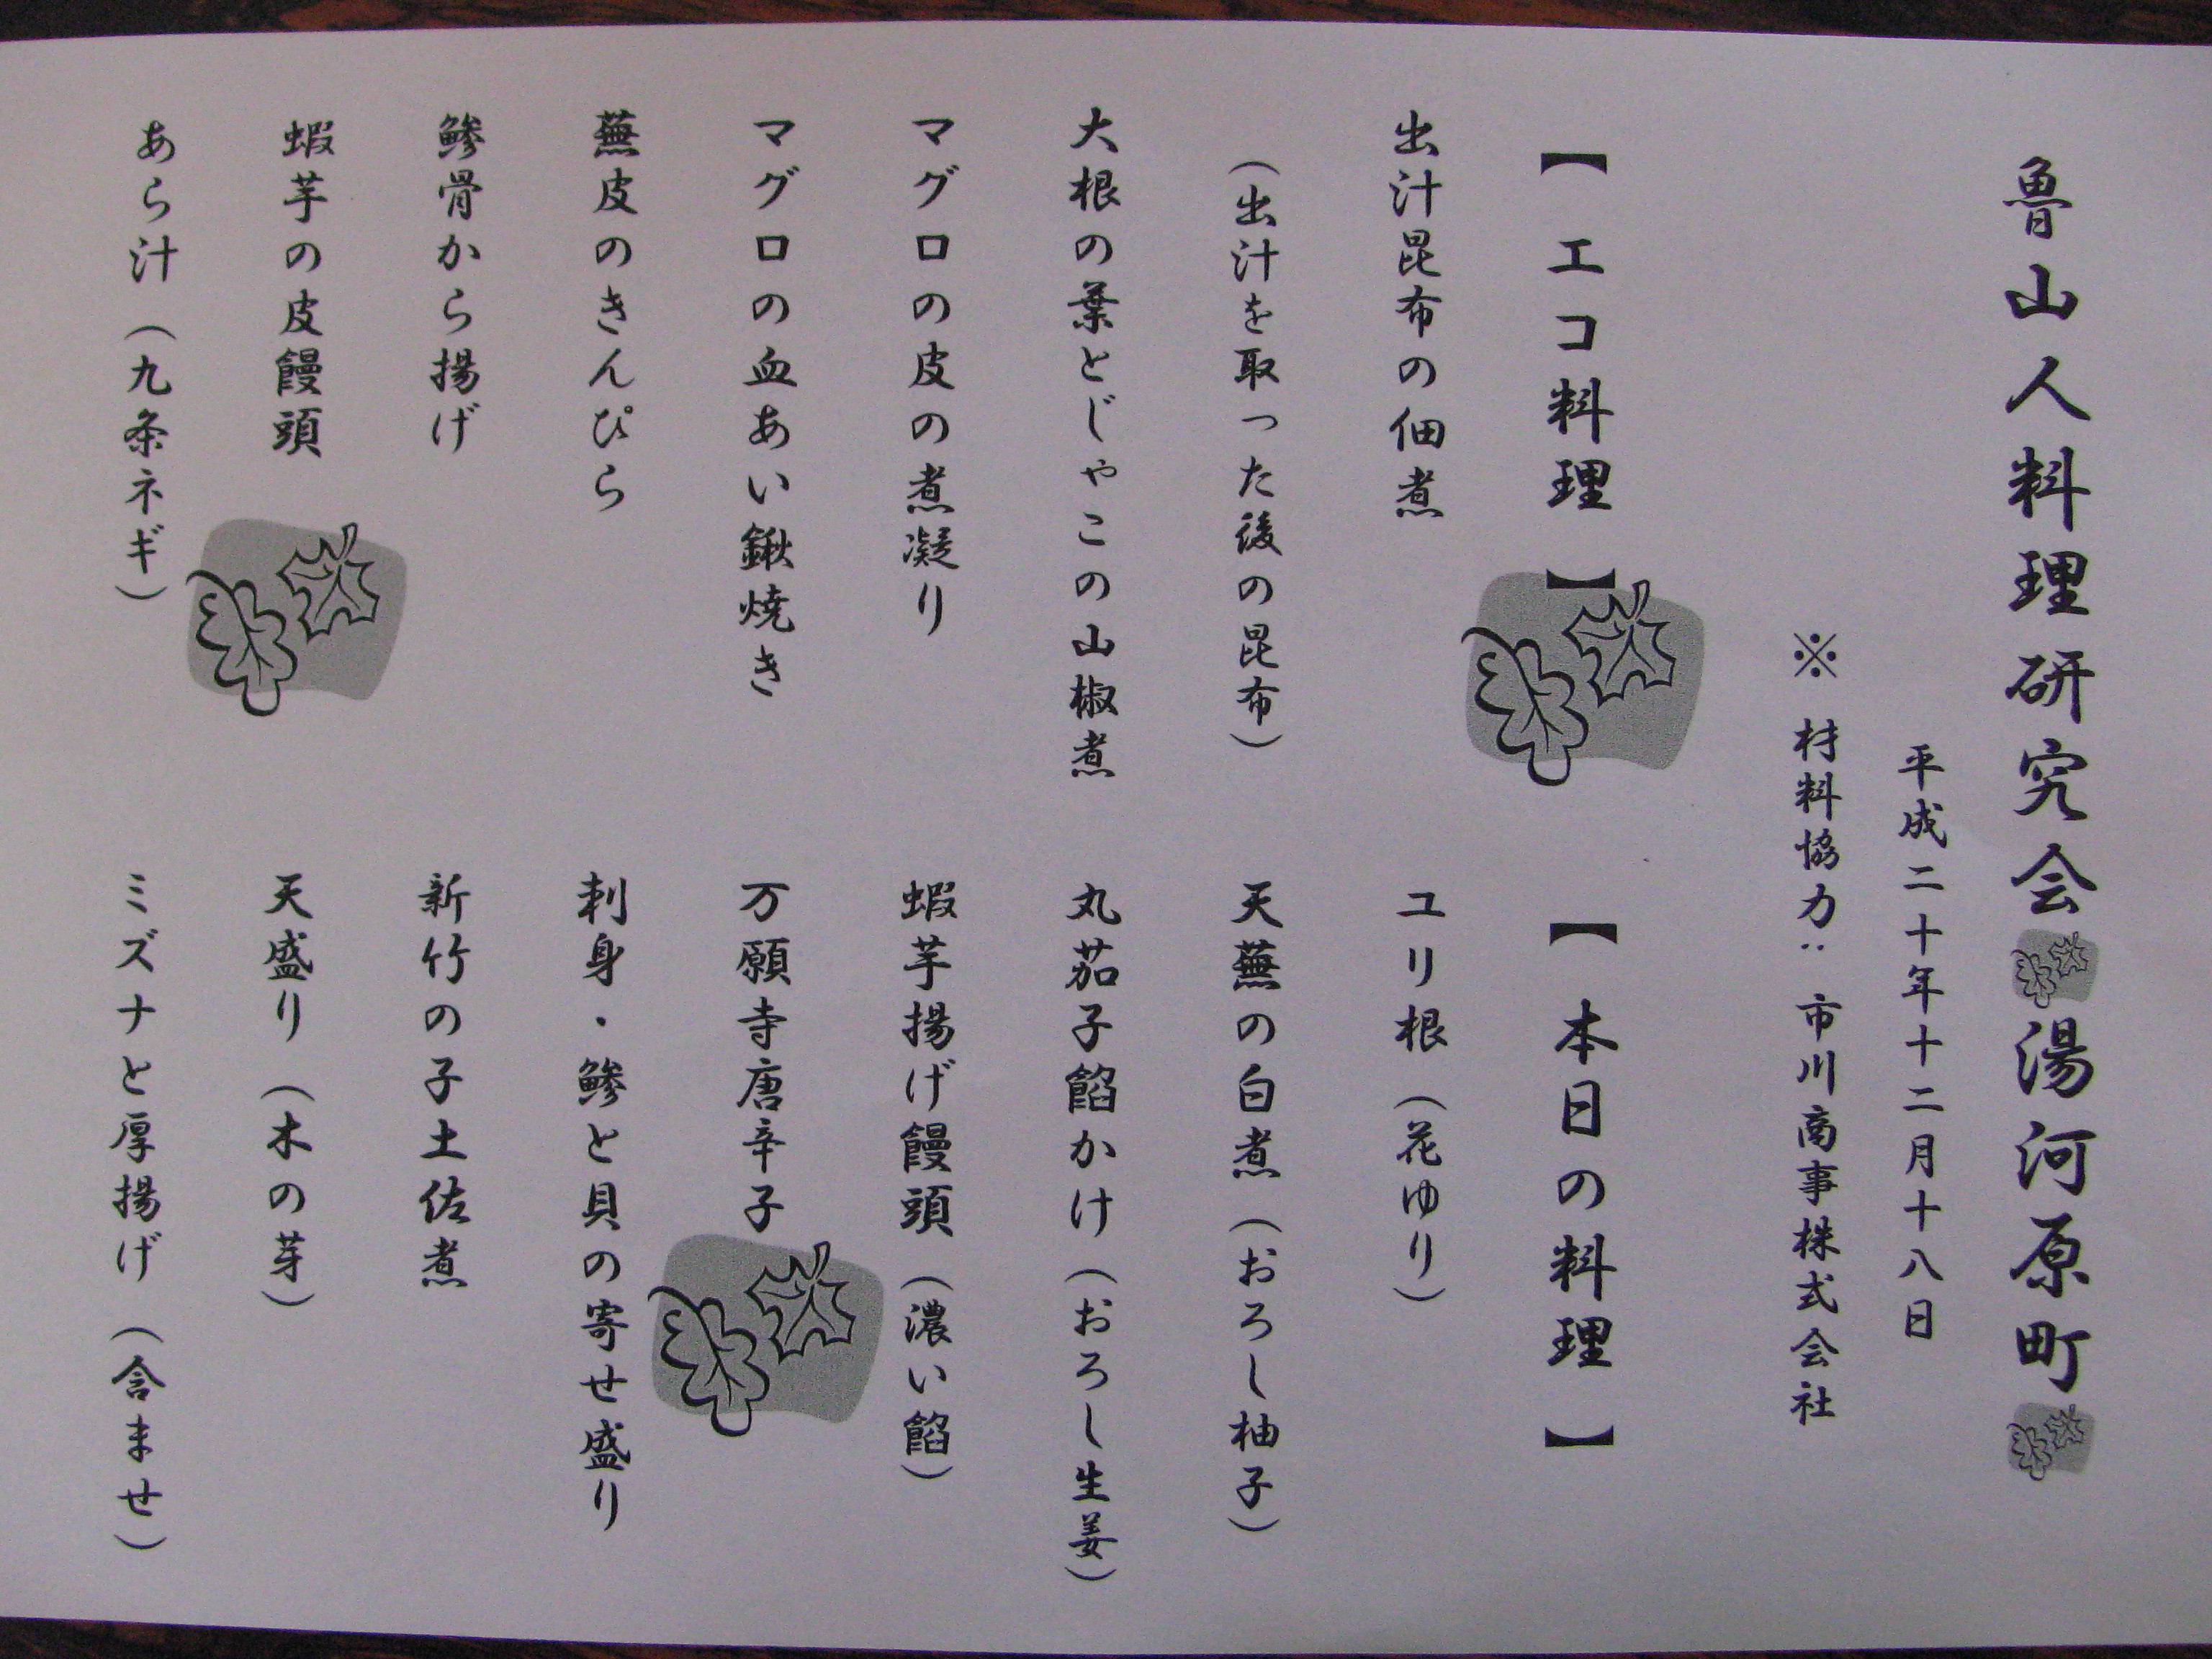 魯山人料理研究会 湯河原町
平成二十年十二月十八日
※ 材料協力： 市川商事株式会社
【 エコ料理 】
出汁昆布の佃煮
（出汁を取った後の昆布）
大根の葉とじゃこの山椒煮
マグロの皮の煮凝り
マグロの血あい鍬焼き
蕪皮のきんぴら
鯵骨から揚げ
蝦芋の皮饅頭
あら汁（九条ネギ）
【 本日の料理 】
ユリ根（花ゆり）
天蕪の白煮（おろし柚子）
丸茄子餡かけ（おろし生姜）
蝦芋揚げ饅頭（濃い餡）
万願寺唐辛子
刺身・鯵と貝の寄せ盛り
新竹の子土佐煮
天盛り（木の芽）
ミズナと厚揚げ（含ませ）